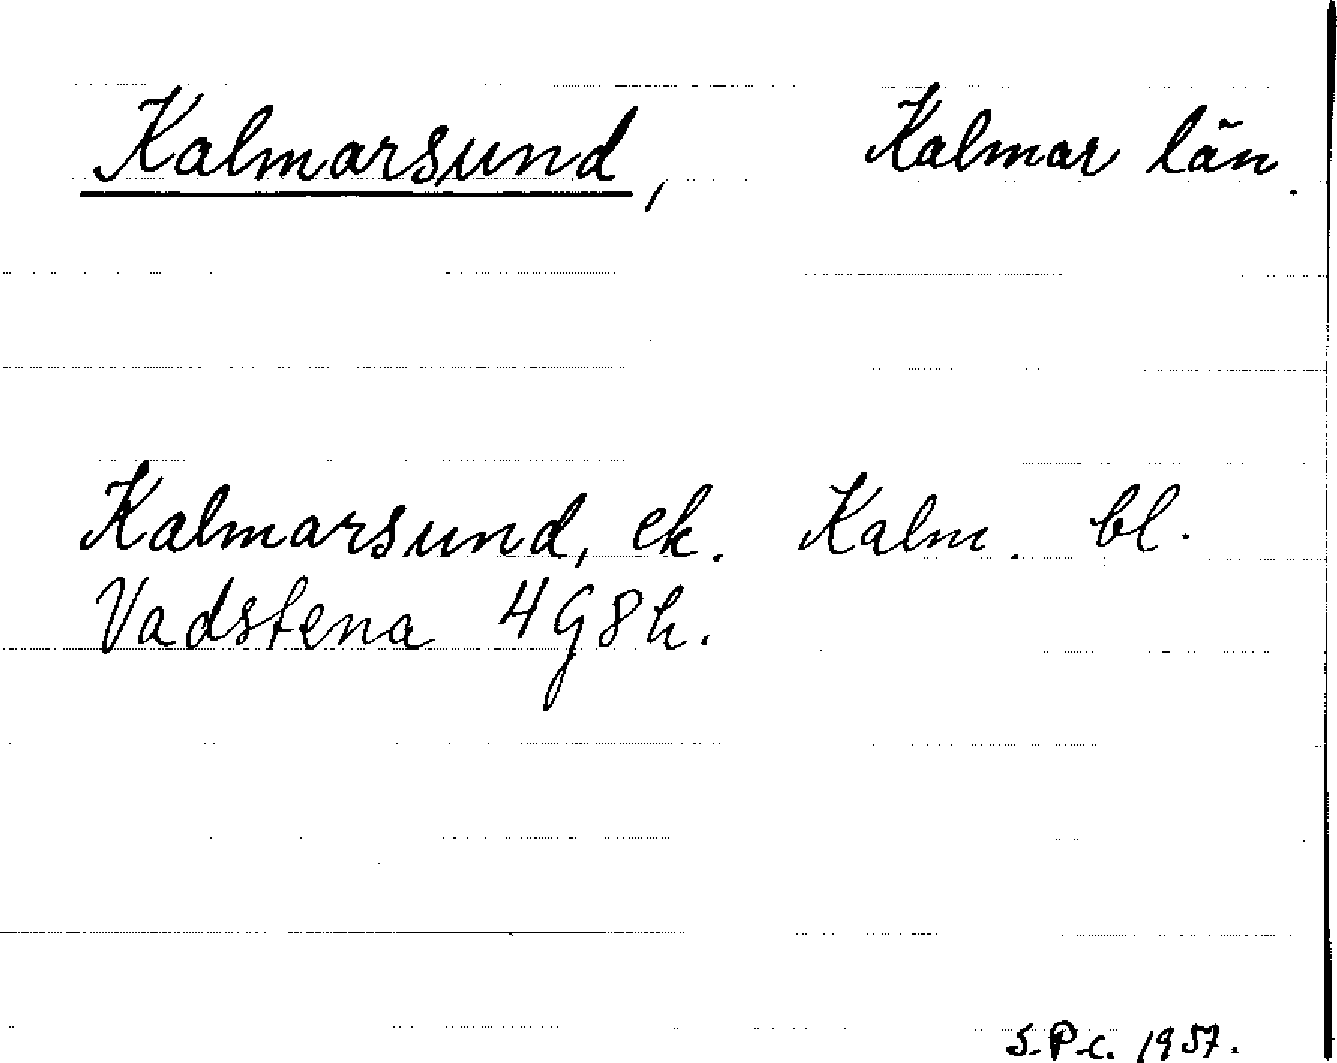 Kalmarsund, Kalmar län.
Kalmarsund, ek. Kalm. bl.
Vadstena 4G8h.
S.P.C. 1957.